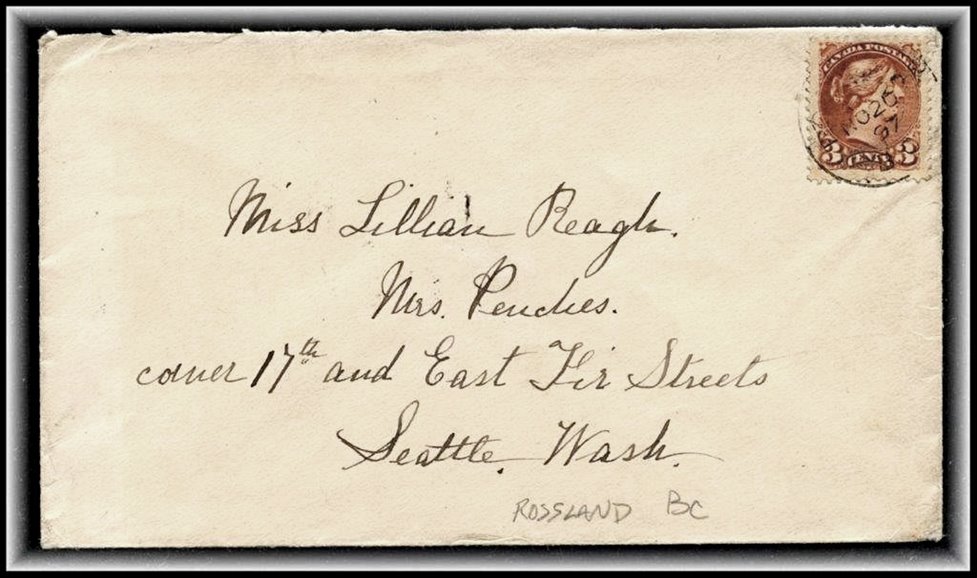 CANADA POSTAGE
NO 20
97
3 CENTS 3
Miss Lillian Reagh.
Mrs. Penches.
corner 17th and East Fir Streets
Seattle, Wash.
ROSSLAND BC